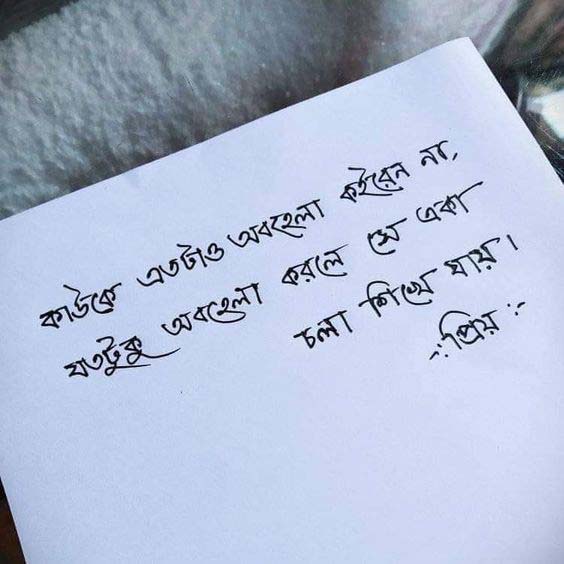 কাউকে এতটাও অবহেলা কইরেন না,
যতটুকু অবহেলা করলে সে একা
চলা শিখে যায়।
প্রিয়